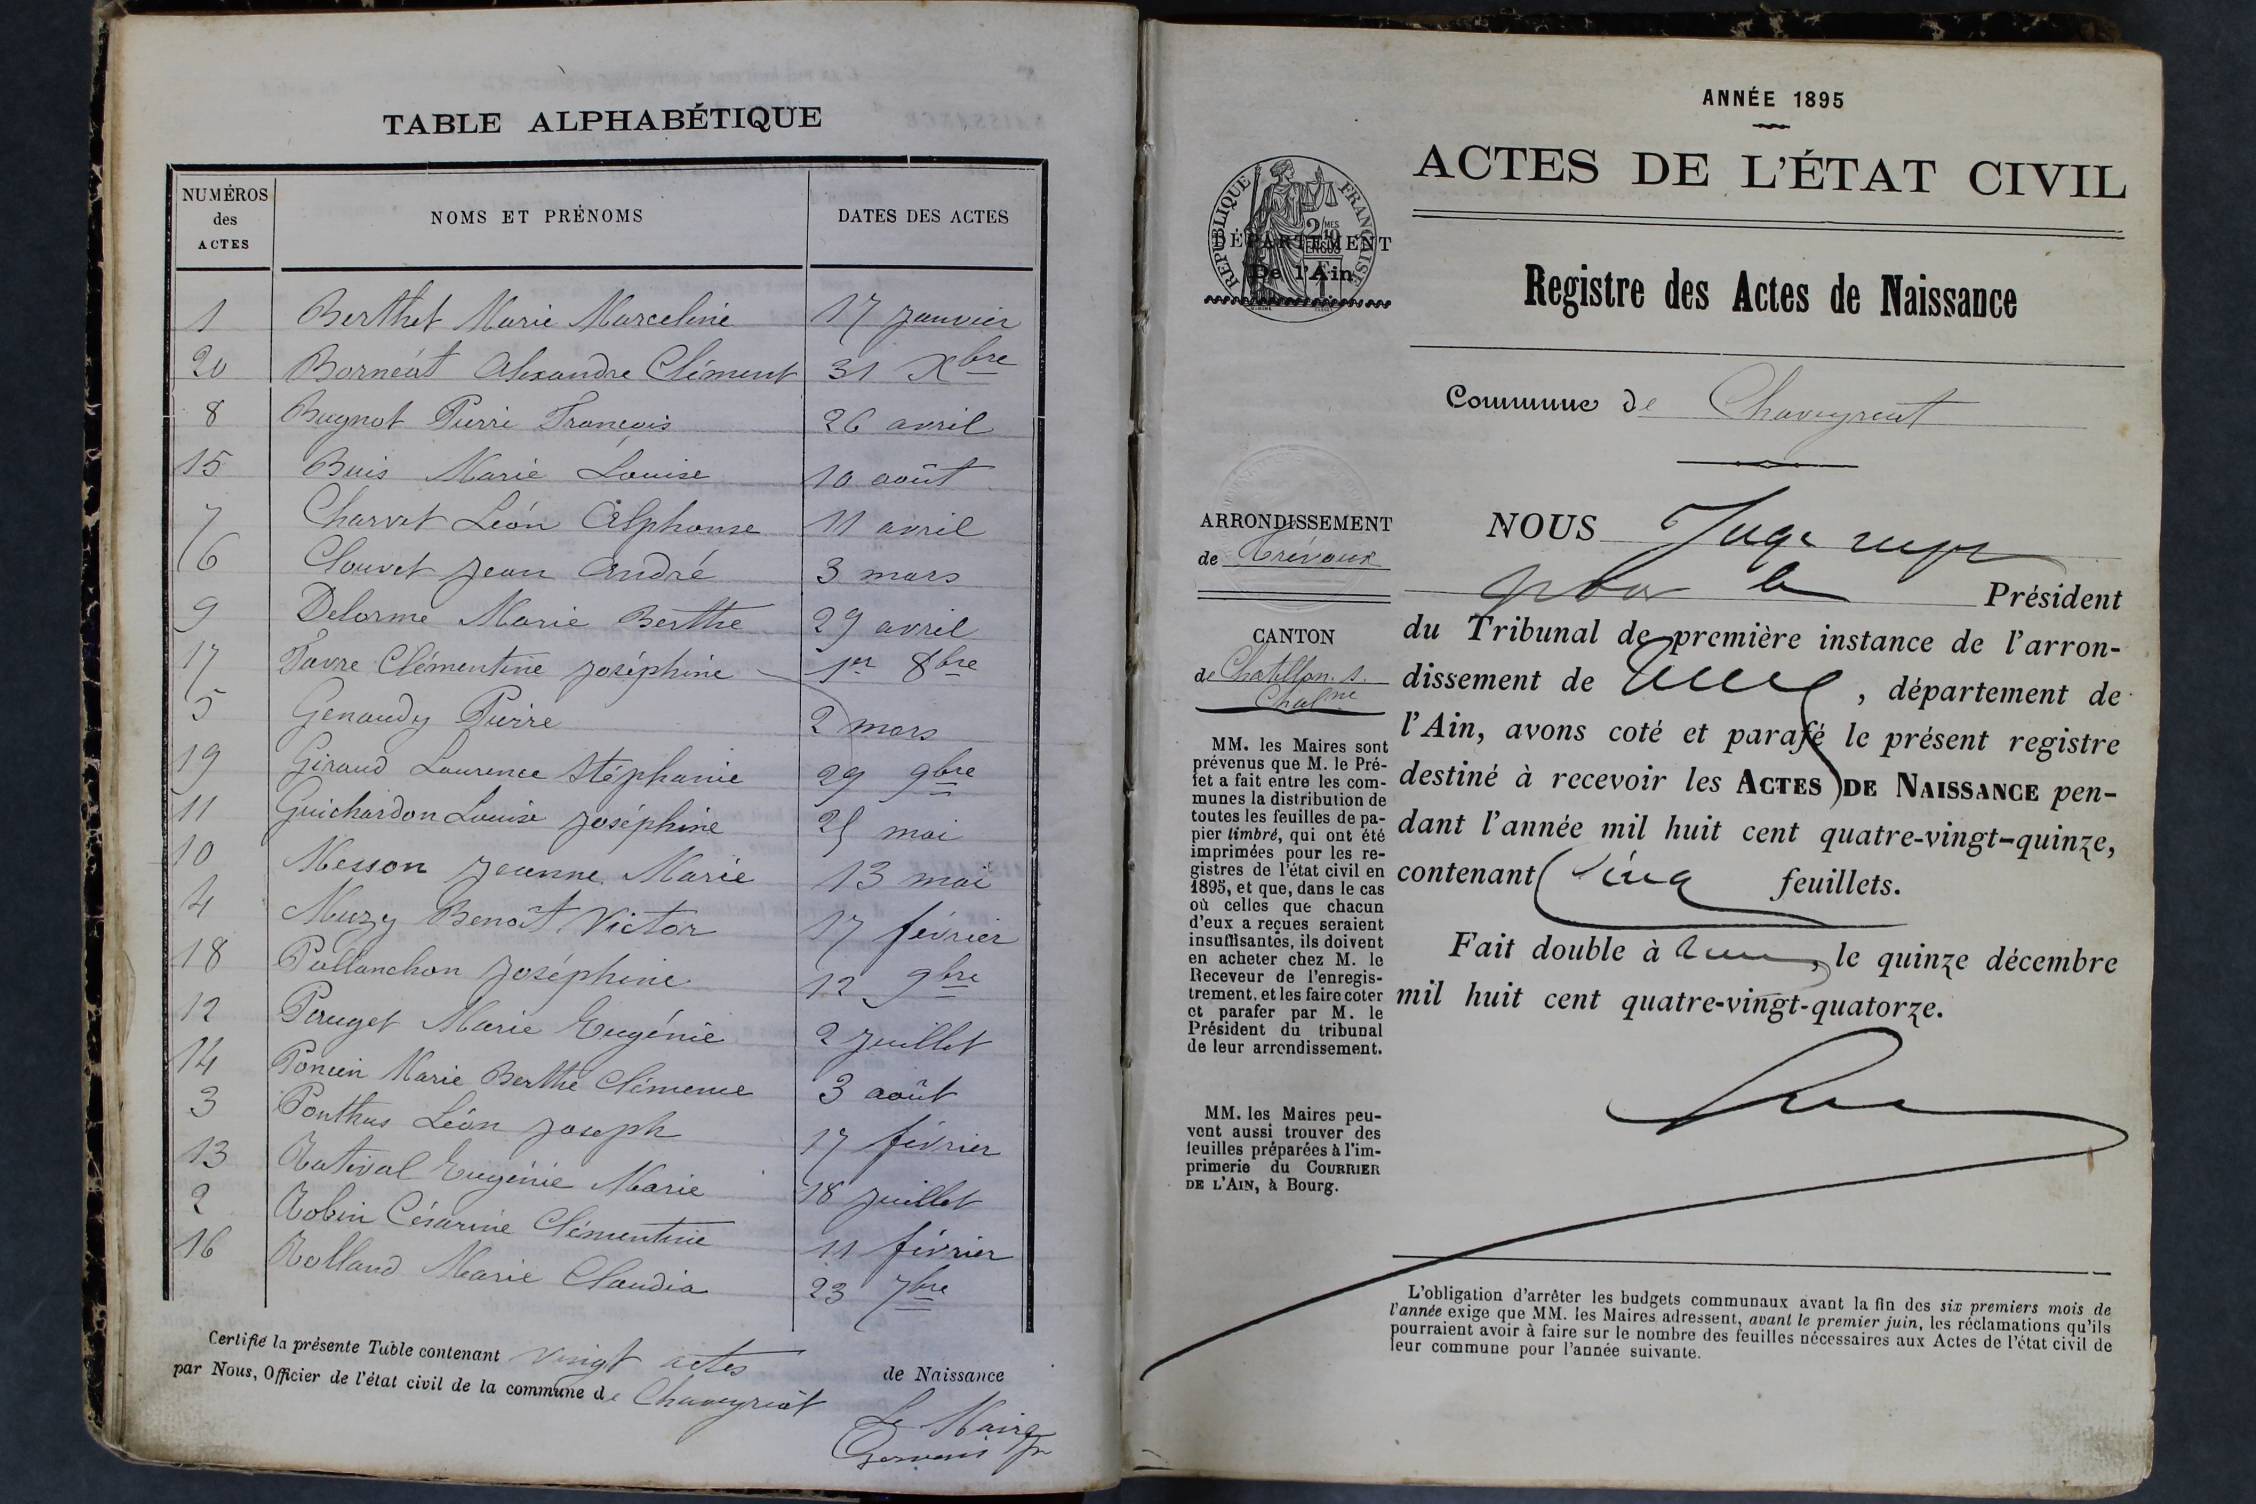 TABLE ALPHABÉTIQUE
NUMÉROS des ACTES NOMS ET PRÉNOMS DATES DES ACTES
1 Berthet Marie Marceline 17 Janvier
20 Bornéat Alexandre Clément 31 Xbre
8 Bugnot Pierre François 26 avril
15 Buis Marie Louise 10 août
7 Charvet Léon Alphonse 11 avril
6 Clouvet Jean André 3 mars
9 Delorme Marie Berthe 29 avril
17 Favre Clémentine Joséphine 1er 8bre
5 Genaudy Pierre 2 mars
19 Giraud Laurence Stéphanie 29 9bre
11 Guichardon Louise Joséphine 25 mai
10 Messon Jeanne Marie 13 mai
4 Muzy Benoît Victor 17 février
18 Pallanchon Joséphine 12 9bre
12 Peruget Marie Eugénie 2 Juillet
14 Poncin Marie Berthe Clémence 3 août
3 Ponthus Léon Joseph 17 février
13 Rativel Eugénie Marie 18 Juillet
2 Robin Césarine Clémentine 11 février
16 Rolland Marie Claudia 23 7bre
Certifié la présente Table contenant vingt actes de Naissance
par Nous, Officier de l'état civil de la commune de Chaveyriat
Le Maire
ANNÉE 1895
ACTES DE L'ÉTAT CIVIL
RÉPUBLIQUE FRANÇAISE
DÉPARTEMENT
De l'Ain
Registre des Actes de Naissance
Commune de Chaveyriat
ARRONDISSEMENT
de Trévoux
CANTON
de Chatillon. s.
Chalne
MM. les Maires sont
prévenus que M. le Pré-
fet a fait entre les com-
munes la distribution de
toutes les feuilles de pa-
pier timbré, qui ont été
imprimées pour les re-
gistres de l'état civil en
1895, et que, dans le cas
où celles que chacun
d'eux a reçues seraient
insuffisantes, ils doivent
en acheter chez M. le
Receveur de l'enregis-
trement, et les faire coter
et parafer par M. le
Président du tribunal
de leur arrondissement.
MM. les Maires peu-
vent aussi trouver des
feuilles préparées à l'im-
primerie du COURRIER
DE L'AIN, à Bourg.
NOUS Juge
pour le Président
du Tribunal de première instance de l'arron-
dissement de , département de
l'Ain, avons coté et parafé le présent registre
destiné à recevoir les ACTES DE NAISSANCE pen-
dant l'année mil huit cent quatre-vingt-quinze,
contenant Cinq feuillets.
Fait double à , le quinze décembre
mil huit cent quatre-vingt-quatorze.
L'obligation d'arrêter les budgets communaux avant la fin des six premiers mois de
l'année exige que MM. les Maires adressent, avant le premier juin, les réclamations qu'ils
pourraient avoir à faire sur le nombre des feuilles nécessaires aux Actes de l'état civil de
leur commune pour l'année suivante.